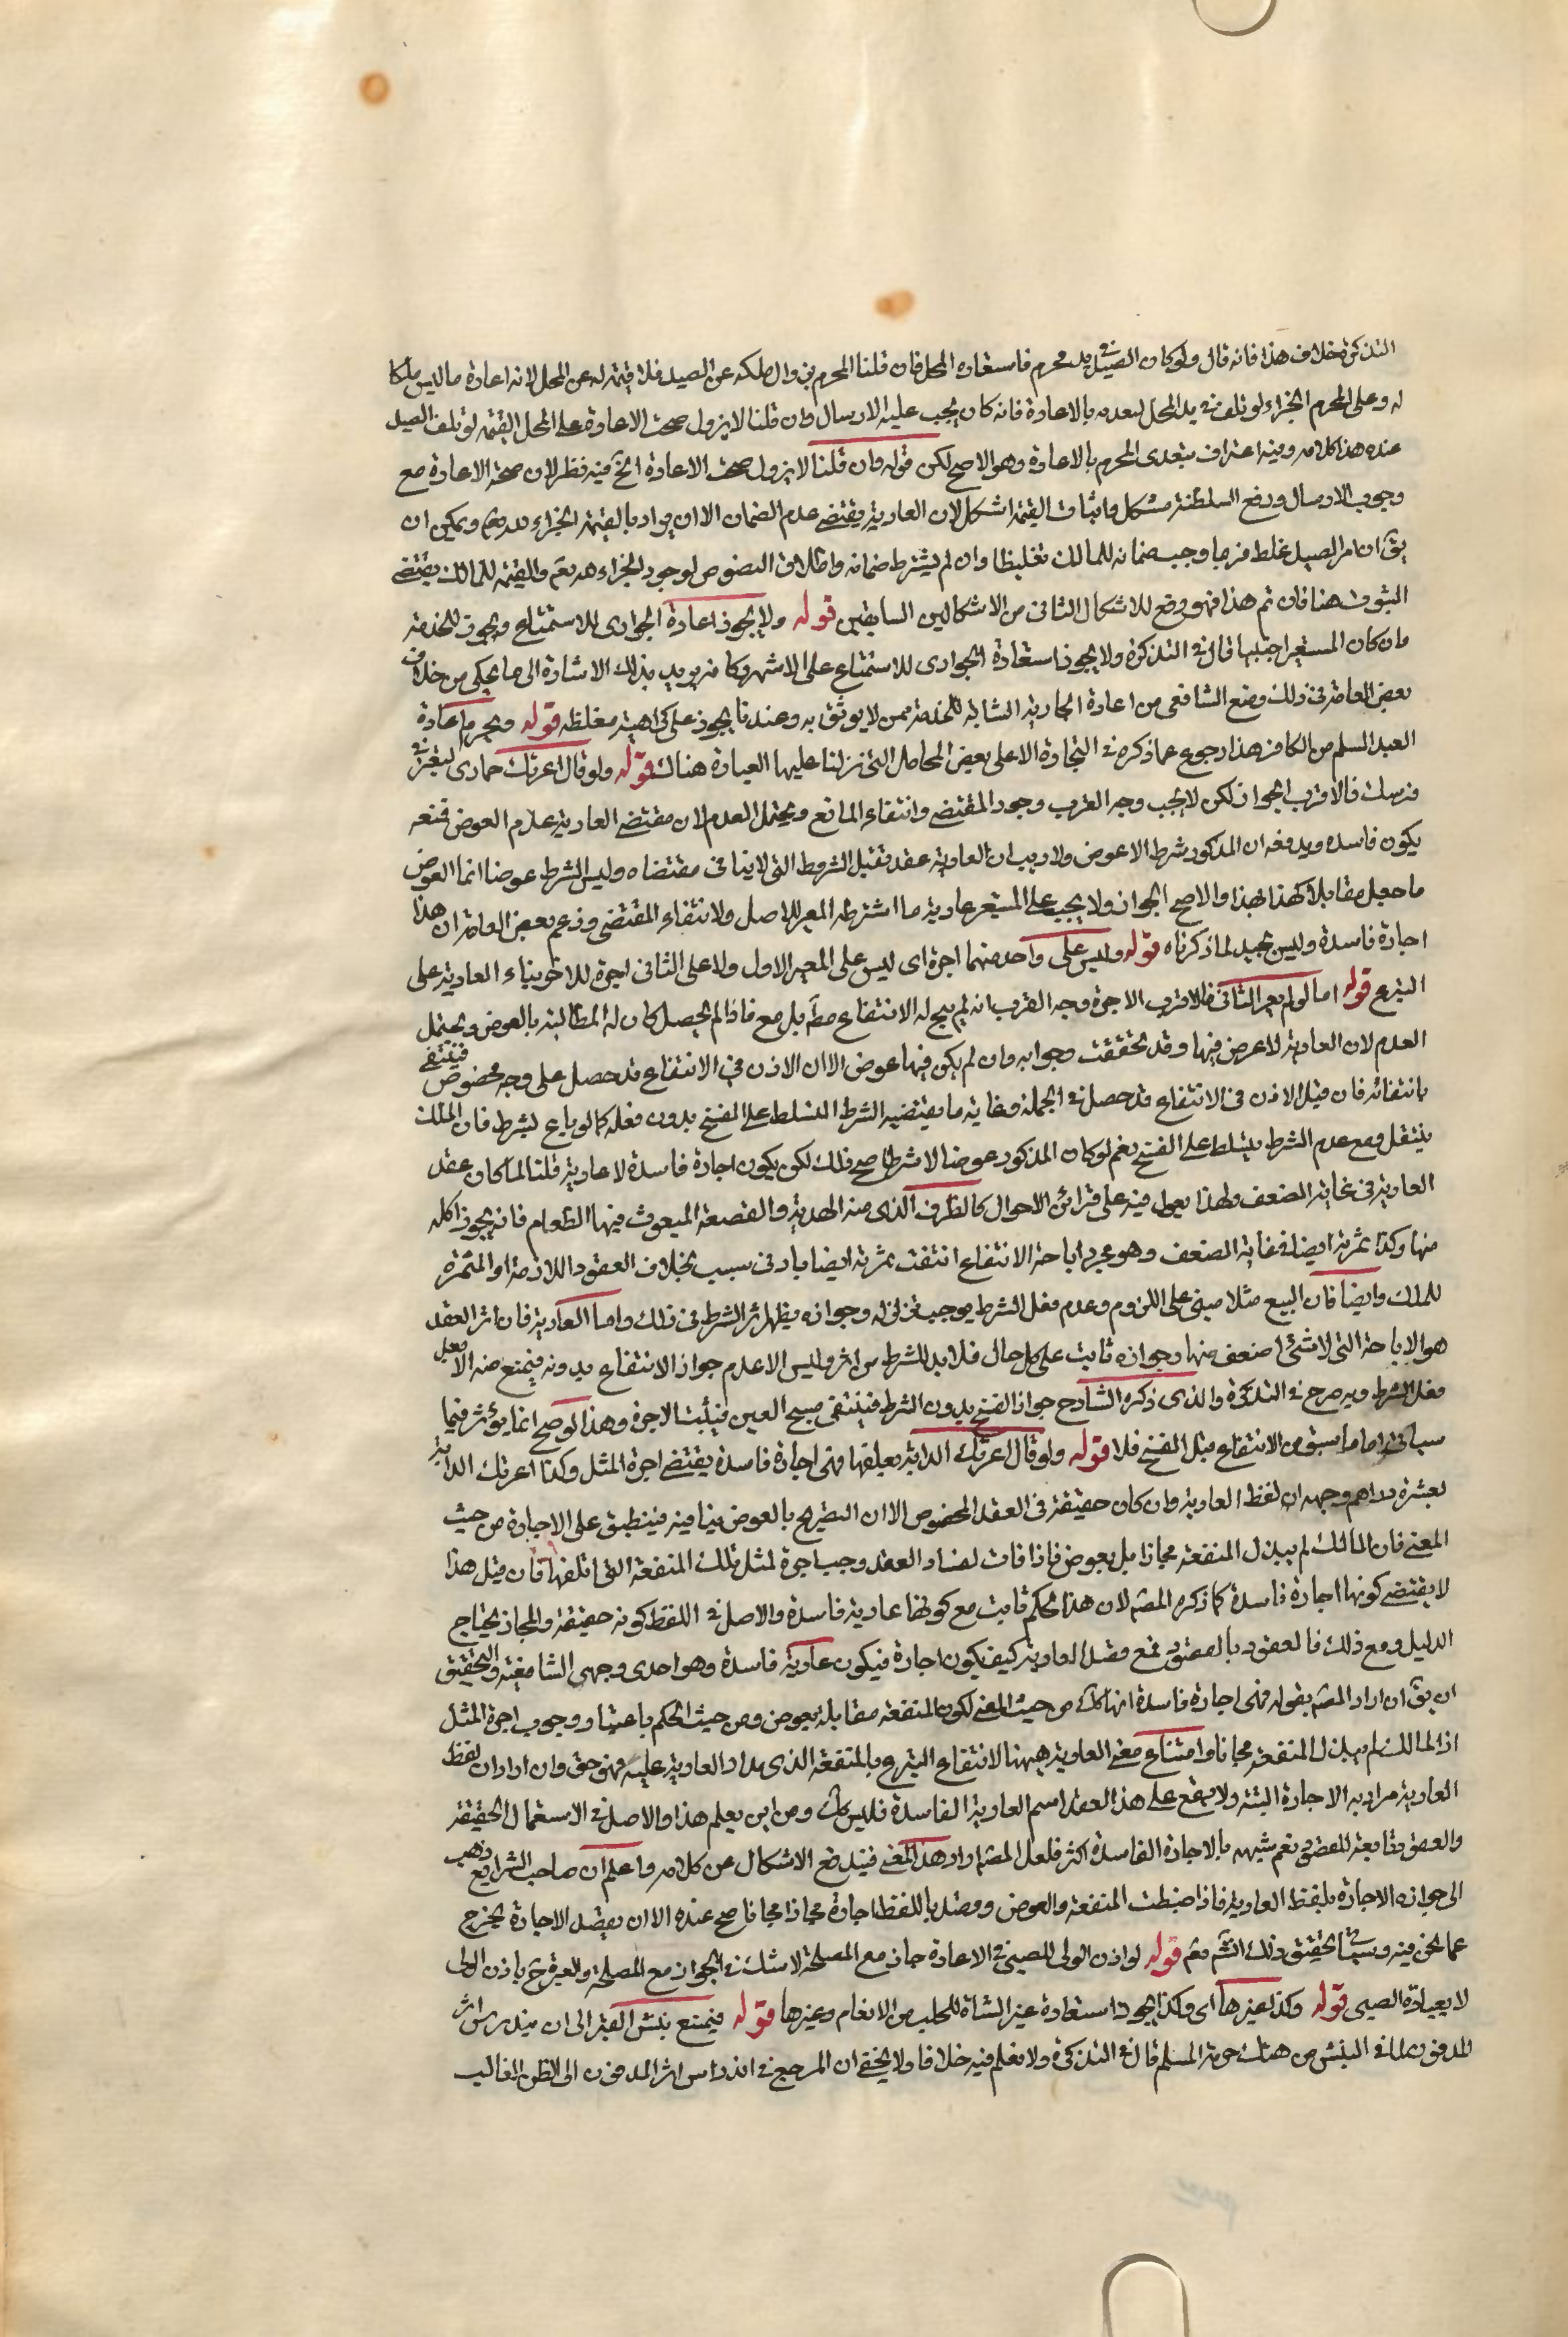 التذكرة خلاف هذا فانه قال ولو كان الصيد في يد محرم فاستعاره المحل فان قلنا المحرم يزول ملكه عن الصيد فلا قيمة له عن المحل لانه اعاره ما ليس ملكا
له وعلى المحرم الجزاء لو تلف في يد المحل لتعديه بالاعارة فانه كان يجب عليه الارسال وان قلنا لا يزول صحت الاعارة على المحل القيمة لو تلف الصيد
عنده هذا كلامه وفيه اعتراف بتعدى المحرم بالاعارة وهو الاصح لكن قوله وان قلنا لا يزول صحت الاعارة الخ فيه نظر لان صحة الاعارة مع
وجوب الارسال ورفع السلطنة مشكل واثبات القيمة اشكل لان العارية يقتضى عدم الضمان الا ان يراد بالقيمة الجزاء لله تعم ويمكن ان
يق ان امر الصيد غلط فربما وجب ضمانه للمالك تغليظا وان لم يشترط ضمانه واطلاق النصوص لوجود الجزاء لله تعم والقيمة للمالك يقتضى
الثبوت هنا فان تم هذا فهو دفع للاشكال الثانى من الاشكالين السابقين قوله ولا يجوز اعارة الجوارى للاستمتاع ويجوز للخدمة
وان كان المستعير اجنبيا قال في التذكرة ولا يجوز استعارة الجوارى للاستمتاع على الاشهر وكانه يريد بذلك الاشارة الى ما يحكى من خلاف
بعض العامة فى ذلك ومنع الشافعى من اعارة الجارية الشابة للخدمة ممن لا يوثق به وعندنا يجوز على كراهية مغلظة قوله ويحرم اعارة
العبد المسلم من الكافر هذا رجوع عما ذكره في التجارة الا على بعض المحامل التى نزلنا عليها العبارة هناك قوله ولو قال اعرتك حمارى لتعيرنى
فرسك فالاقرب الجواز لكن لا يجب وجه القرب وجود المقتضى وانتفاء المانع ويحتمل العدم لان مقتضى العارية عدم العوض فمعه
يكون فاسده ويدفعه ان المذكور شرط لا عوض ولا ريب ان العارية عقد فتقبل الشروط التى لا ينافى مقتضاه وليس الشرط عوضا انما العوض
ما جعل مقابلا كهذا بهذا والاصح الجواز ولا يجب على المستعير عارية ما اشترطه المعير للاصل ولانتفاء المقتضى وزعم بعض العامة ان هذا
اجارة فاسدة وليس بجيد لما ذكرناه قوله وليس على واحد منهما اجرة اى ليس على المعير الاول ولا على الثانى اجرة للاخر بناء العارية على
التبرع قوله اما لو لم يعر الثانى فالاقرب الاجرة وجه القرب انه لم يبح له الانتفاع مطلقا بل مع فاذا لم يحصل كان له المطالبة بالعوض ويحتمل
العدم لان العارية لا عوض فيها وقد تحققت وجوابه وان لم يكن فيها عوض الا ان الاذن فى الانتفاع قد حصل على وجه مخصوص فينتفى
بانتفائه فان قيل الاذن فى الانتفاع قد حصل في الجملة وغاية ما يقتضيه الشرط التسلط على الفسخ بدون فعله كما لو باع بشرط فان الملك
ينتقل ومع عدم الشرط يتسلط على الفسخ نعم لو كان المذكور عوضا لا شرطا صح ذلك لكن يكون اجارة فاسدة لا عارية قلنا لما كان عقد
العارية فى غاية الضعف ولهذا يعول فيه على قرائن الاحوال كالظرف الذى فيه الهدية والقصعة المبعوث فيها الطعام فانه يجوز اكله
منها وكذا ثمرته ايضا فى غاية الضعف وهو مجرد اباحة الانتفاع انتفت ثمرته ايضا بادنى سبب بخلاف العقود اللازمة او المثمرة
للملك وايضا فان البيع مثلا مبنى على اللزوم وعدم فعل الشرط يوجب تزلزله وجوازه فيظهر اثر الشرط فى ذلك واما العارية فان اثر العقد
هو الاباحة التى لا شئ اضعف منها وجوازه ثابت على كل حال فلا بد للشرط من اثر وليس الا عدم جواز الانتفاع بدونه فيمتنع منه الا بعد
فعل الشرط وبه صرح فى التذكرة والذى ذكره الشارح جواز الفسخ بدون الشرط فينتفى مبيح العين فيثبت الاجرة وهذا لو صح انما يؤثر فيما
سياتى اما ما سبق من الانتفاع قبل الفسخ فلا قوله ولو قال اعرتك الدابة بعلفها فهى اجارة فاسدة يقتضى اجرة المثل وكذا اعرتك الدابة
بعشرة دراهم وجهه ان لفظ العارية وان كان حقيقة فى العقد المخصوص الا ان التصريح بالعوض ينافيه فينطبق على الاجارة من حيث
المعنى فان المالك لم يبذل المنفعة مجازا بل بعوض فاذا فات لفساد العقد وجب اجرة لمثل تلك المنفعة التى اتلفها فان قيل هذا
لا يقتضى كونها اجارة فاسدة كما ذكره المصم لان هذا الحكم ثابت مع كونها عارية فاسدة والاصل في اللفظ كونه حقيقة والمجاز يحتاج
الدليل ومع ذلك فالعقود بالقصود فمع قصد العارية كيف يكون اجارة فيكون عارية فاسدة وهو احدى وجهى الشافعية والتحقيق
ان يق ان اراد المصم بقوله فهى اجارة فاسدة انها كك من حيث المعنى لكون المنفعة مقابلة بعوض ومن حيث الحكم باعتبار وجوب اجرة المثل
اذ المالك لم يبذل المنفعة مجانا وامتناع معنى العارية هيهنا لانتفاع التبرع بالمنفعة الذى مدار العارية عليه فهو حق وان اراد ان لفظ
العارية مراد به الاجارة البتة ولا يقع على هذا العقد اسم العارية الفاسدة فليس كك ومن اين يعلم هذا والاصل في الاستعمال الحقيقة
والعقود تابعة للقصود نعم شبهه بالاجارة الفاسدة اكثر فلعل المصم اراد هذا المعنى فيندفع الاشكال عن كلامه واعلم ان صاحب الشرايع ذهب
الى جوازه الاجارة بلفظ العارية فاذا ضبطت المنفعة والعوض وقصد باللفظ اجارة مجازا مجانا صح عنده الا ان بقصد الاجارة يخرج
عما نحن فيه وسياتى تحقيق ذلك انشم تعم قوله لو اذن الولى للصبى في الاعارة جاز مع المصلحة لا شك في الجواز مع المصلحة والعبرة ح باذن الولى
لا بعبارة الصبى قوله وكذا غيرها اى وكذا يجوز استعارة غير الشاة للحلب من الانعام وغيرها قوله فيمتنع نبش القبر الى ان يندرس اثر
المدفون لما فى النبش من هتك حرمة المسلم قال في التذكرة ولا نعلم فيه خلافا ولا يخفى ان المرجع في اندراس اثر المدفون الى الظن الغالب